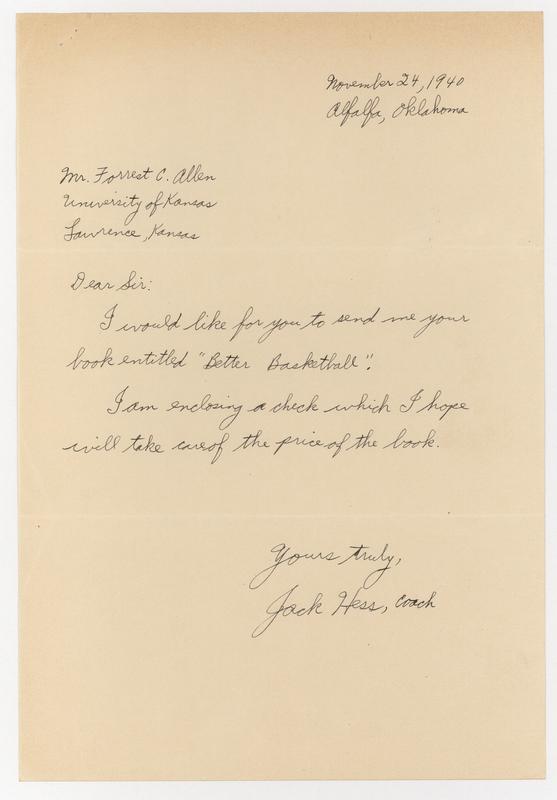 November 24, 1940
Alfalfa, Oklahoma
Mr. Forrest C. Allen
University of Kansas
Lawrence, Kansas
Dear Sir:
I would like for you to send me your
book entitled "Better Basketball".
I am enclosing a check which I hope
will take care of the price of the book.
Yours truly,
Jack Hess, coach